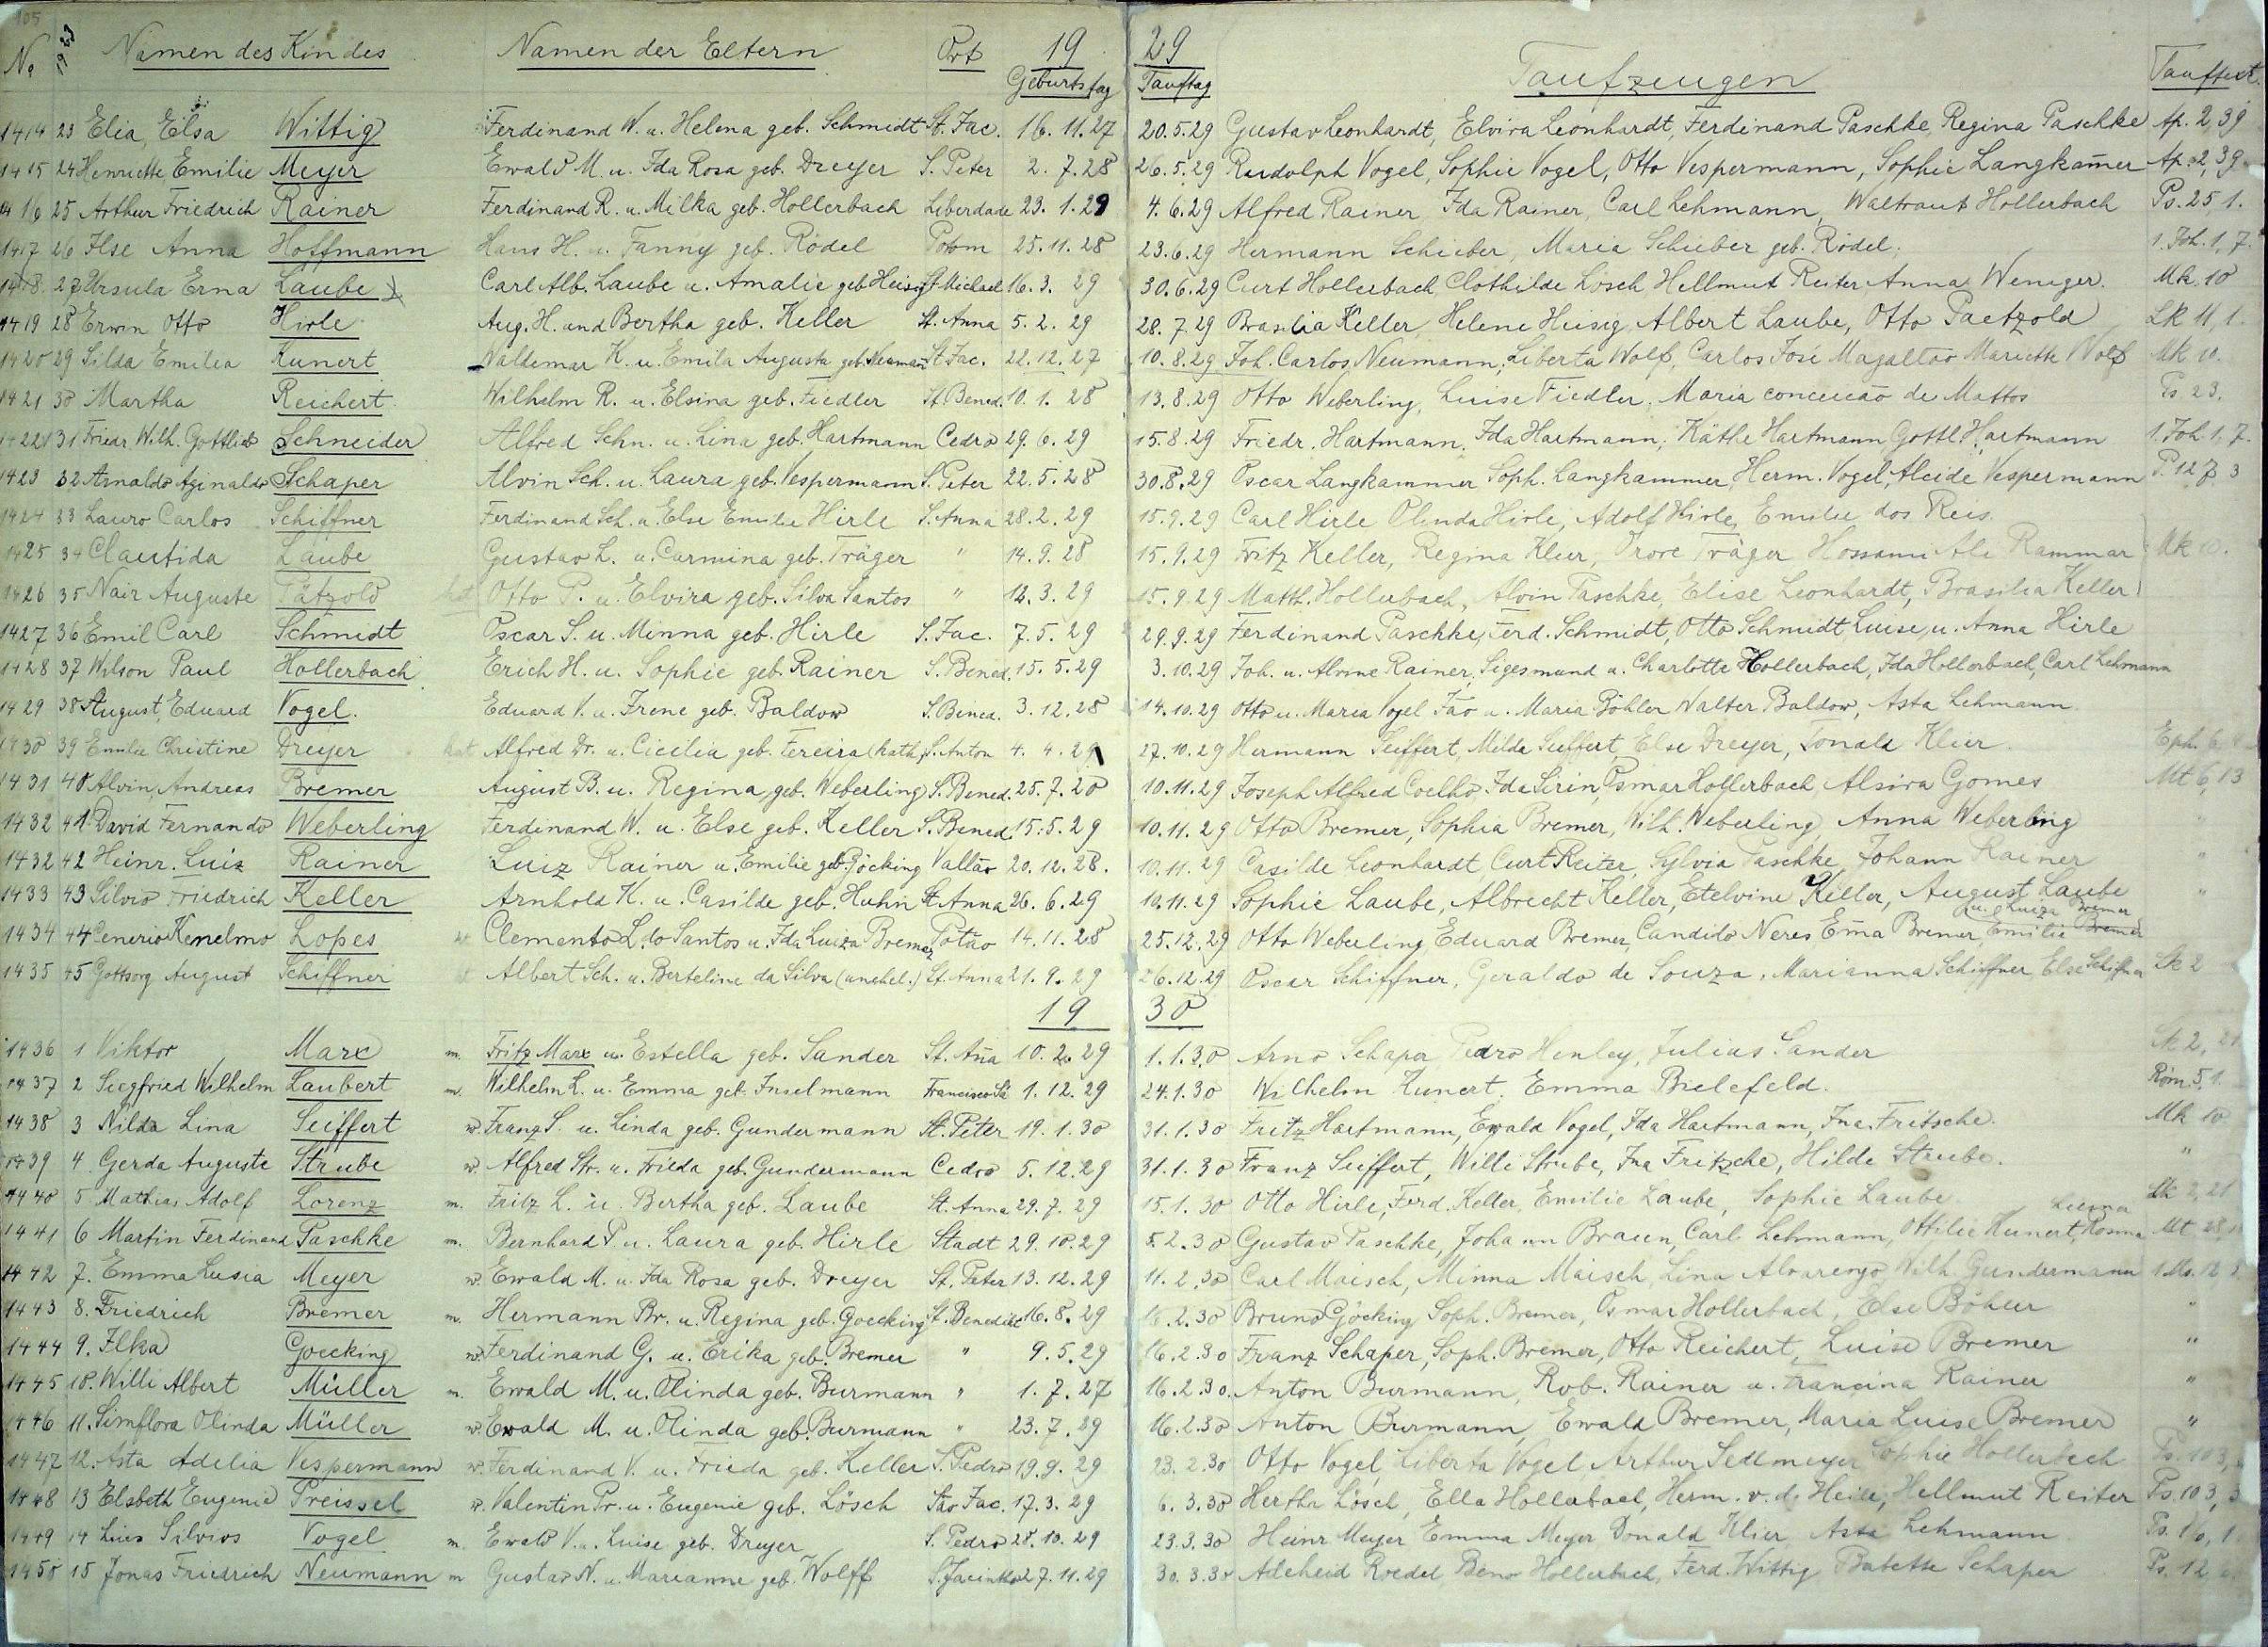 105
No 1929 Namen des Kindes Namen der Eltern Ort 19 29 Taufzeugen Tauftext
Geburtstag Tauftag
1414 23 Elia, Elsa Wittig Ferdinand W. u. Helena geb. Schmidt St. Jac. 16. 11. 27 20.5.29 Gustav Leonhardt, Elvira Leonhardt, Ferdinand Paschke, Regina Paschke Ap. 2,39
1415 24 Henriette, Emilie Meyer Ewald M. u. Ida Rosa geb. Dreyer S. Peter 2. 7. 28 26.5.29 Rudolph Vogel, Sophie Vogel, Otto Vespermann, Sophie Langkam̄er Ap. 2,39
1416 25 Arthur Friedrich Rainer Ferdinand R. u. Milka geb. Hollerbach Liberdade 23. 1. 29 4.6.29 Alfred Rainer, Ida Rainer, Carl Lehmann, Waltraut Hollerbach Ps. 25,1.
1417 26 Ilse Anna Hoffmann Hans H. u. Fanny geb. Rödel Potom 25. 11. 28 23.6.29 Hermann Schieber, Maria Schieber geb. Rödel. 1. Joh. 1,7.
1418 27 Ursula Erna Laube Carl Alb. Laube u. Amalie geb Heisig St Michael 16. 3. 29 30.6.29 Curt Hollerbach, Clothilde Lösch Hellmut Reiter, Anna Weniger. Mk. 10
1419 28 Erwin Otto Hirle Aug. H. und Bertha geb. Keller St. Anna 5. 2. 29 28. 7. 29 Brasilia Keller, Helene Heisig, Albert Laube, Otto Paetzold Lk 11,1.
1420 29 Silda Emilia Kunert Waldemar K. u. Emila Augusta geb. Neuman̄ St Jac. 22. 12. 27 10. 8. 29 Joh. Carlos Neumann, Liberta Wolf, Carlos José Magaltao Mariette Wolf Mk 10.
1421 30 Martha Reichert Wilhelm R. u. Elsina geb. Fiedler St. Bened. 10. 1. 28 13. 8. 29 Otto Weberling, Luise Fiedler, Maria conceicão de Mattos Ps 23.
1422 31 Friedr. Wilh. Gottlieb Schneider Alfred Schn. u. Lina geb. Hartmann Cedro 29. 6. 29 15. 8. 29 Friedr. Hartmann, Ida Hartmann, Käthe Hartmann Gottl Hartmann 1. Joh. 1,7.
1423 32 Arnaldo Aginaldo Schaper Alvin Sch. u. Laura geb. Vespermann S. Peter 22. 5. 28 30.8.29 Oscar Langkammer Soph. Langkammer, Herm. Vogel, Aleide Vespermann P. 127 3
1424 33 Lauro Carlos Schiffner Ferdinand Sch. u. Else Emilie Hirle S. Anna 28. 2. 29 15.9.29 Carl Hirle Olinda Hirle, Adolf Hirle, Emilie dos Reis.
1425 34 Claufida Laube Gustav L. u. Carmina geb. Träger " 14. 9. 28 15.9.29 Fritz Keller, Regina Klier, Träger Hossami Ali Rammar Mk 10.
1426 35 Nair Auguste Pätzold Otto P. u. Elvira geb. Silva Santos " 12. 3. 29 15.9.29 Matth. Hollerbach, Alvin Paschke, Elise Leonhardt, Brasilia Keller
1427 36 Emil Carl Schmidt Oscar S. u. Minna geb. Hirle S. Jac. 7. 5. 29 29.9.29 Ferdinand Paschke, Ferd. Schmidt, Otto Schmidt Luise, u. Anna Hirle
1428 37 Wilson Paul Hollerbach Erich H. u. Sophie geb. Rainer S. Bened. 15. 5. 29 3.10.29 Joh. u. Alvine Rainer, Sigesmund u. Charlotte Hollerbach, Ida Hollerbach, Carl Lehmann
1429 38 August, Eduard Vogel. Eduard V. u. Irene geb. Baldow S. Bened. 3. 12. 28 14.10.29 Otto u. Maria Vogel Jão u. Maria Böhler Walter Baldow, Asta Lehmann
1430 39 Emilie Christine Dreyer kat Alfred Dr. u. Cicilia geb. Fereira (kath) S. Anton 4. 4. 29 27.10.29 Hermann Seiffert, Milda Seiffert, Else Dreyer, Donald Klier. Eph. 6
1431 40 Alvin, Andreas Bremer August B. u. Regina, geb. Weberling S. Bened. 25. 7. 28 10.11.29 Joseph Alfred Coelho, Ida Sirin, Osmar Hollerbach, Alsira Gomes Mt 6,13
1432 41. David Fernando Weberling Ferdinand W. u. Else geb. Keller S. Bened. 15. 5. 29 10.11.29 Otto Bremer, Sophia Bremer, Wilh. Weberling, Anna Weberling "
1432 42 Heinr. Luiz Rainer Luiz Rainer u. Emilie geb. Göcking Vallão 20. 12. 28. 10.11.29 Casilde Leonhardt, Curt Reiter, Sylvia Paschke, Johann Rainer "
1433 43 Silvio Friedrich Keller Arnhold K. u. Casilde geb. Huhn St Anna 26. 6. 29 10.11.29 Sophie Laube, Albrecht Keller, Etelvine Keller, August Laube "
u. Luiza Bremer
1434 44 Cenerio Kenelmo Lopes Clemento L. do Santos u. Ida Luiza Bremer Potão 14. 11. 28 25.12.29 Otto Weberling Eduard Bremer, Candido Neres Em̄a Bremer, Emilie Bremer
1435 45 Gottsorg August Schiffner Albert Sch. u. Berteline da Silva (unehel.) St. Anna 21. 9. 29 26.12.29 Oscar Schiffner, Geraldo de Souza, Marianna Schiffner, Else Schiffner Lk 2
19 30
1436 1 Viktor Marx m. Fritz Marx u. Estella geb. Sander St. An̄a 10. 2. 29 1.1.30 Arno Schaper Pedro Henley, Julius Sander Lk 2, 21
1437 2 Siegfried Wilhelm Laubert m. Wilhelm L. u. Emma geb. Inselmann Francisco Sá 1. 12. 29 24.1.30 Wilhelm Kunert. Emma Bielefeld. Röm. 5,1.
1438 3 Nilda Lina Seiffert w. Franz S. u. Linda geb. Gundermann St. Peter 19. 1. 30 31.1.30 Fritz Hartmann, Ewald Vogel, Ida Hartmann, Ina Fritsche. Mk 10
1439 4. Gerda Auguste Strube w. Alfred Str. u. Frieda geb. Gundermann Cedro 5. 12. 29 31.1.30 Franz Seiffert, Willi Strube, Ina Fritzche, Hilde Strube. "
1440 5 Mathias Adolf Lorenz m. Fritz L. u. Bertha geb. Laube St. Anna 29. 7. 29 15.1.30 Otto Hirle, Ferd. Keller, Emilie Laube, Sophie Laube. Lk 2,21
1441 6 Martin Ferdinand Paschke m. Bernhard P. u. Laura geb. Hirle Stadt 29. 10. 29 5.2.30 Gustav Paschke, Johann Braun, Carl Lehmann, Ottilie Kunert, Mt 28,
1442 7. Emma Lusia Meyer w. Ewald M. u. Ida Rosa geb. Dreyer St. Peter 13. 12. 29 11.2.30 Carl Maisch, Minna Maisch, Lina Alvarengo, Wilh. Gundermann 1. Ms. 12
1443 8. Friedrich Bremer m. Hermann Br. u. Regina geb. Goecking St. Benedict 16. 8. 29 16.2.30 Bruno Göcking Soph. Bremer, Osmar Hollerbach, Else Böhler "
1444 9. Ilka Goecking w. Ferdinand G. u. Erika geb. Bremer " 9. 5. 29 16.2.30 Franz Schaper, Soph. Bremer, Otto Reichert, Luise Bremer "
1445 10. Willi Albert Müller m. Ewald M. u. Olinda geb. Burmann " 1. 7. 27 16.2.30. Anton Burmann, Rob. Rainer u. Francina Rainer "
1446 11. Simflora Olinda Müller w. Ewald M. u. Olinda geb. Burmann " 23. 7. 29 16.2.30 Anton Burmann, Ewald Bremer, Maria Luise Bremer "
1447 12. Asta Adelia Vespermann w. Ferdinand V. u. Frieda geb. Keller S. Pedro 19. 9. 29 23.2.30 Otto Vogel, Liberta Vogel Arthur Sellmeyer Sophie Hollerbach Ps. 103,
1448 13 Elsbeth Eugenie Preissel w. Valentin Pr. u. Eugenie geb. Lösch São Jac. 17. 3. 29 6. 3.30 Hertha Lösch, Ella Hollerbach, Herm. v. d. Heide, Hellmut Reiter Ps. 103,3
1449 14 Luis Silvios Vogel m. Ewald V. u. Luise geb. Dreyer S. Pedro 28. 10. 29 23.3.30 Heinr Meyer Emma Meyer Donald Klier Asta Lehmann Ps. 16,1
1450 15 Jonas Friedrich Neumann m Gustav N. u. Marianne geb. Wolff S. Jacintho 27. 11. 29 30.3.30 Adeheid Roedel Beno Hollerbach, Ferd. Wittig Babette Schaper Ps. 12